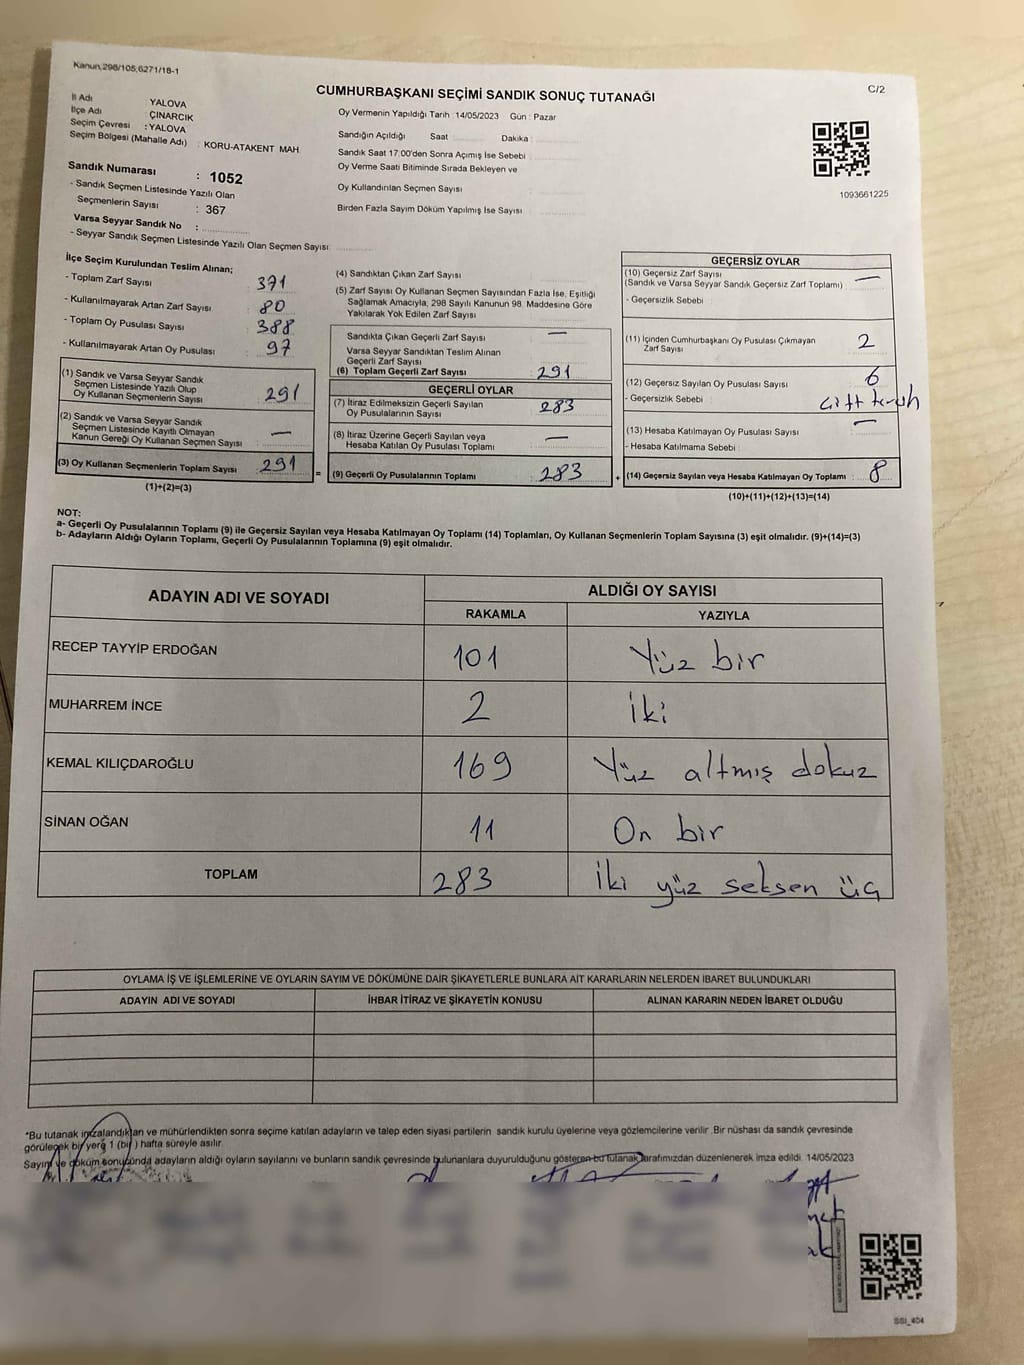 Kanun;298/105;6271/18-1
CUMHURBAŞKANI SEÇİMİ SANDIK SONUÇ TUTANAĞI
C/2
İl Adı : YALOVA
İlçe Adı : ÇINARCIK
Seçim Çevresi : YALOVA
Seçim Bölgesi (Mahalle Adı) : KORU-ATAKENT MAH.
Sandık Numarası : 1052
- Sandık Seçmen Listesinde Yazılı Olan
Seçmenlerin Sayısı : 367
Varsa Seyyar Sandık No :
- Seyyar Sandık Seçmen Listesinde Yazılı Olan Seçmen Sayısı:
Oy Vermenin Yapıldığı Tarih : 14/05/2023 Gün : Pazar
Sandığın Açıldığı Saat Dakika
Sandık Saat 17.00'den Sonra Açımış İse Sebebi
Oy Verme Saati Bitiminde Sırada Bekleyen ve
Oy Kullandırılan Seçmen Sayısı
Birden Fazla Sayım Döküm Yapılmış İse Sayısı
1093661225
İlçe Seçim Kurulundan Teslim Alınan;
- Toplam Zarf Sayısı 371
- Kullanılmayarak Artan Zarf Sayısı 80
- Toplam Oy Pusulası Sayısı 388
- Kullanılmayarak Artan Oy Pusulası 97
(1) Sandık ve Varsa Seyyar Sandık
Seçmen Listesinde Yazılı Olup
Oy Kullanan Seçmenlerin Sayısı 291
(2) Sandık ve Varsa Seyyar Sandık
Seçmen Listesinde Kayıtlı Olmayan
Kanun Gereği Oy Kullanan Seçmen Sayısı —
(3) Oy Kullanan Seçmenlerin Toplam Sayısı 291 =
(1)+(2)=(3)
(4) Sandıktan Çıkan Zarf Sayısı
(5) Zarf Sayısı Oy Kullanan Seçmen Sayısından Fazla İse, Eşitliği
Sağlamak Amacıyla; 298 Sayılı Kanunun 98. Maddesine Göre
Yakılarak Yok Edilen Zarf Sayısı
Sandıkta Çıkan Geçerli Zarf Sayısı —
Varsa Seyyar Sandıktan Teslim Alınan
Geçerli Zarf Sayısı
(6) Toplam Geçerli Zarf Sayısı 291
GEÇERLİ OYLAR
(7) İtiraz Edilmeksizin Geçerli Sayılan
Oy Pusulalarının Sayısı 283
(8) İtiraz Üzerine Geçerli Sayılan veya
Hesaba Katılan Oy Pusulası Toplamı —
(9) Geçerli Oy Pusulalarının Toplamı 283 +
GEÇERSİZ OYLAR
(10) Geçersiz Zarf Sayısı
(Sandık ve Varsa Seyyar Sandık Geçersiz Zarf Toplamı) —
- Geçersizlik Sebebi
(11) İçinden Cumhurbaşkanı Oy Pusulası Çıkmayan
Zarf Sayısı 2
(12) Geçersiz Sayılan Oy Pusulası Sayısı 6
- Geçersizlik Sebebi
(13) Hesaba Katılmayan Oy Pusulası Sayısı —
- Hesaba Katılmama Sebebi
(14) Geçersiz Sayılan veya Hesaba Katılmayan Oy Toplamı : 8
(10)+(11)+(12)+(13)=(14)
NOT:
a- Geçerli Oy Pusulalarının Toplamı (9) ile Geçersiz Sayılan veya Hesaba Katılmayan Oy Toplamı (14) Toplamları, Oy Kullanan Seçmenlerin Toplam Sayısına (3) eşit olmalıdır. (9)+(14)=(3)
b- Adayların Aldığı Oyların Toplamı, Geçerli Oy Pusulalarının Toplamına (9) eşit olmalıdır.
ADAYIN ADI VE SOYADI ALDIĞI OY SAYISI
RAKAMLA YAZIYLA
RECEP TAYYİP ERDOĞAN 101 Yüz bir
MUHARREM İNCE 2 İki
KEMAL KILIÇDAROĞLU 169 Yüz altmış dokuz
SİNAN OĞAN 11 On bir
TOPLAM 283 İki yüz seksen üç
OYLAMA İŞ VE İŞLEMLERİNE VE OYLARIN SAYIM VE DÖKÜMÜNE DAİR ŞİKAYETLERLE BUNLARA AİT KARARLARIN NELERDEN İBARET BULUNDUKLARI
ADAYIN ADI VE SOYADI İHBAR İTİRAZ VE ŞİKAYETİN KONUSU ALINAN KARARIN NEDEN İBARET OLDUĞU
*Bu tutanak imzalandıktan ve mühürlendikten sonra seçime katılan adayların ve talep eden siyasi partilerin sandık kurulu üyelerine veya gözlemcilerine verilir. Bir nüshası da sandık çevresinde
görülecek bir yere 1 (bir) hafta süreyle asılır.
Sayım ve döküm sonucunda adayların aldığı oyların sayılarını ve bunların sandık çevresinde bulunanlara duyurulduğunu gösteren bu tutanak tarafımızdan düzenlenerek imza edildi. 14/05/2023
SSI_404